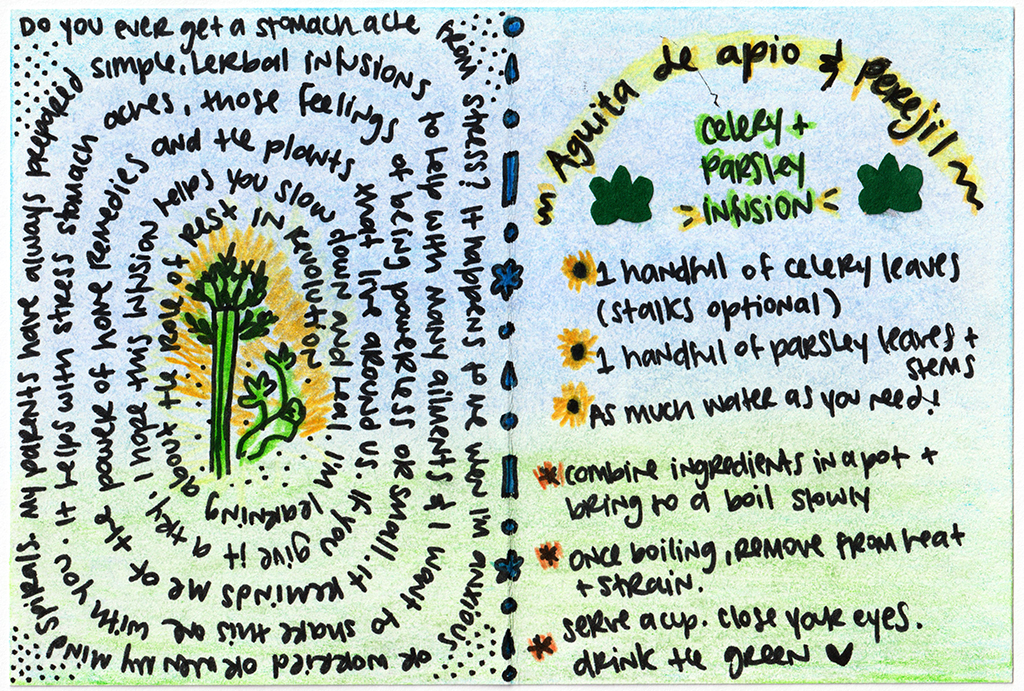 Do you ever get a stomach ache
from stress? It happens to me when I'm anxious
or worried or when my mind spirals.
My parents have always prepared
simple, herbal infusions
to help with many ailments & I want
to share this one with you.
It helps with stress stomach
aches, those feelings
of being powerless or small. It
reminds me of the
power of home remedies
and the plants
that live around us. If you
give it a try,
I hope this infusion
helps you slow
down and heal. I'm learning
about the role of rest in revolution.
Aguita de apio & perejil
celery +
parsley
infusion
1 handful of celery leaves
(stalks optional)
1 handful of parsley leaves +
stems
As much water as you need!
* combine ingredients in a pot +
bring to a boil slowly
* once boiling, remove from heat
+ strain.
* serve a cup. close your eyes.
drink the green ♥